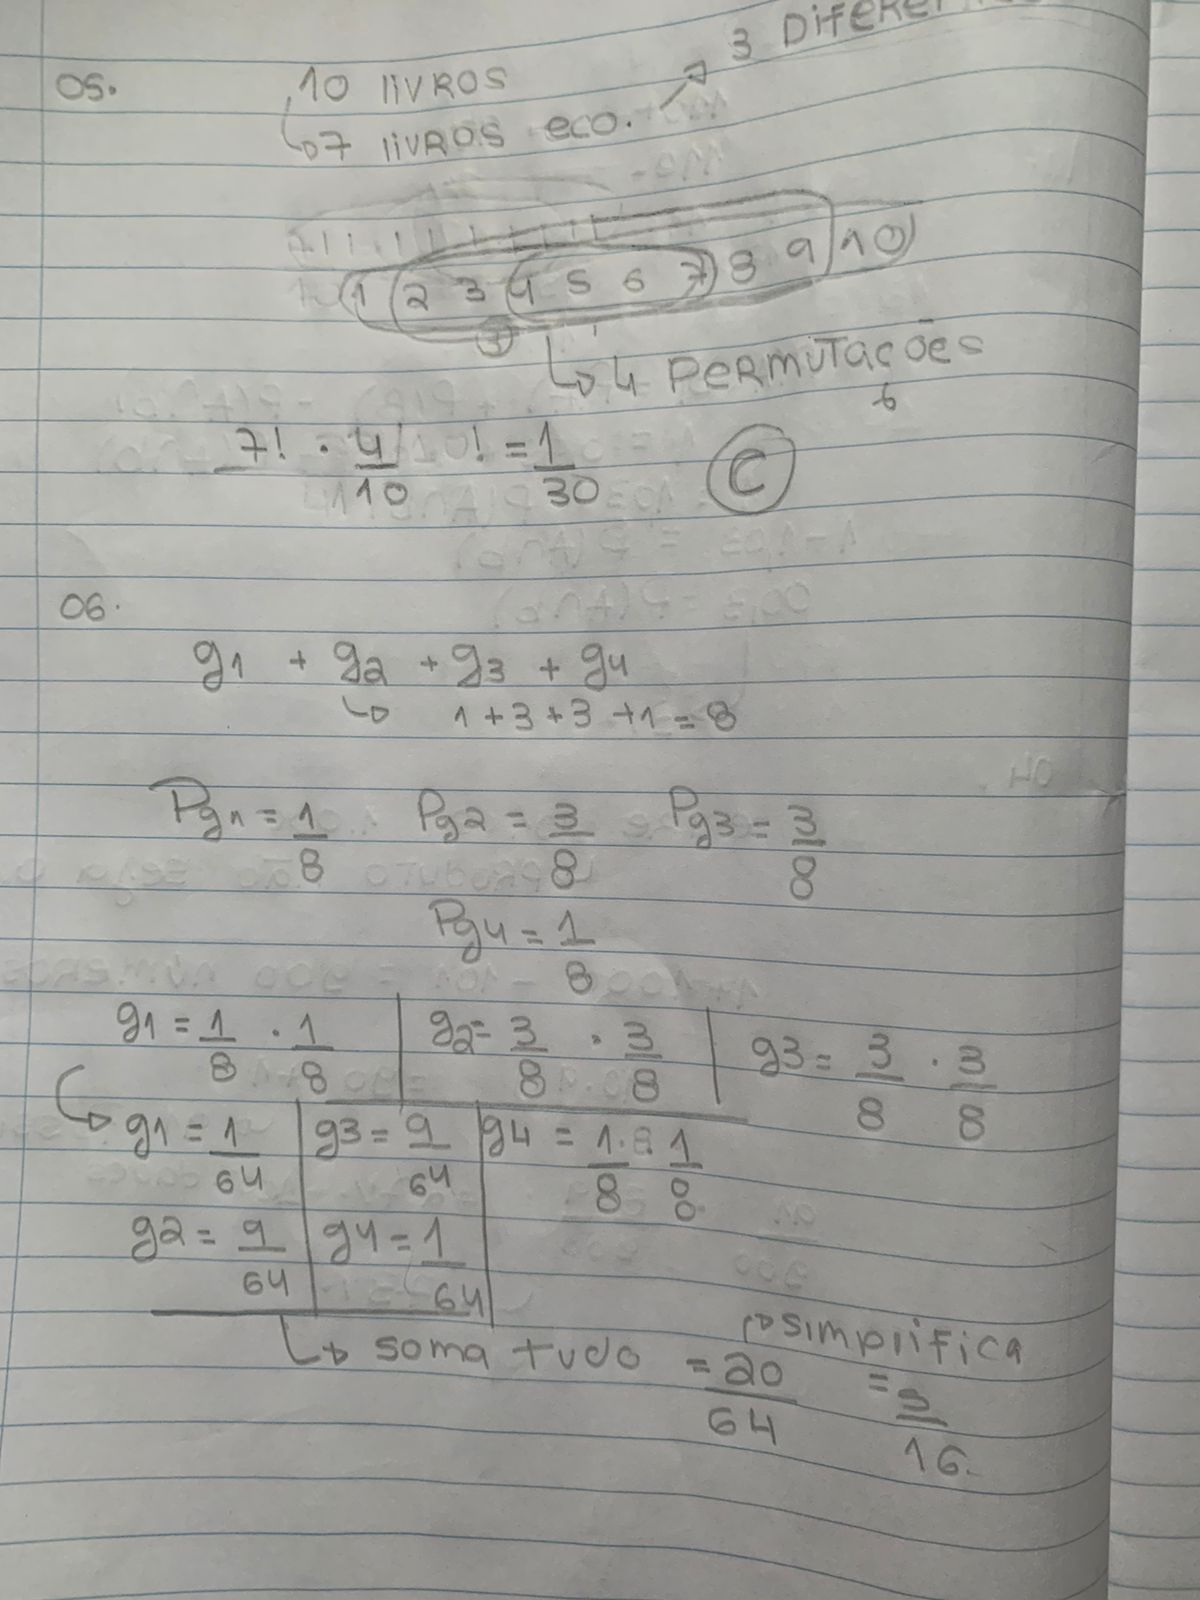 05. 10 LIVROS
↳ 7 LIVROS eco. ↗ 3
1 2 3 4 5 6 7 8 9 10
3
↳ 4 PERMUTAÇÕES
7! · 4/10! = 1/30 C
06.
g1 + g2 + g3 + g4
↳ 1 + 3 + 3 + 1 = 8
Pg1 = 1/8 Pg2 = 3/8 Pg3 = 3/8
Pg4 = 1/8
g1 = 1/8 · 1/8 g2 = 3/8 · 3/8 g3 = 3/8 · 3/8
↳ g1 = 1/64 g3 = 9/64 g4 = 1/8 · 1/8
g2 = 9/64 g4 = 1/64
↳ soma tudo = 20/64 ↱ simplifica = 5/16.